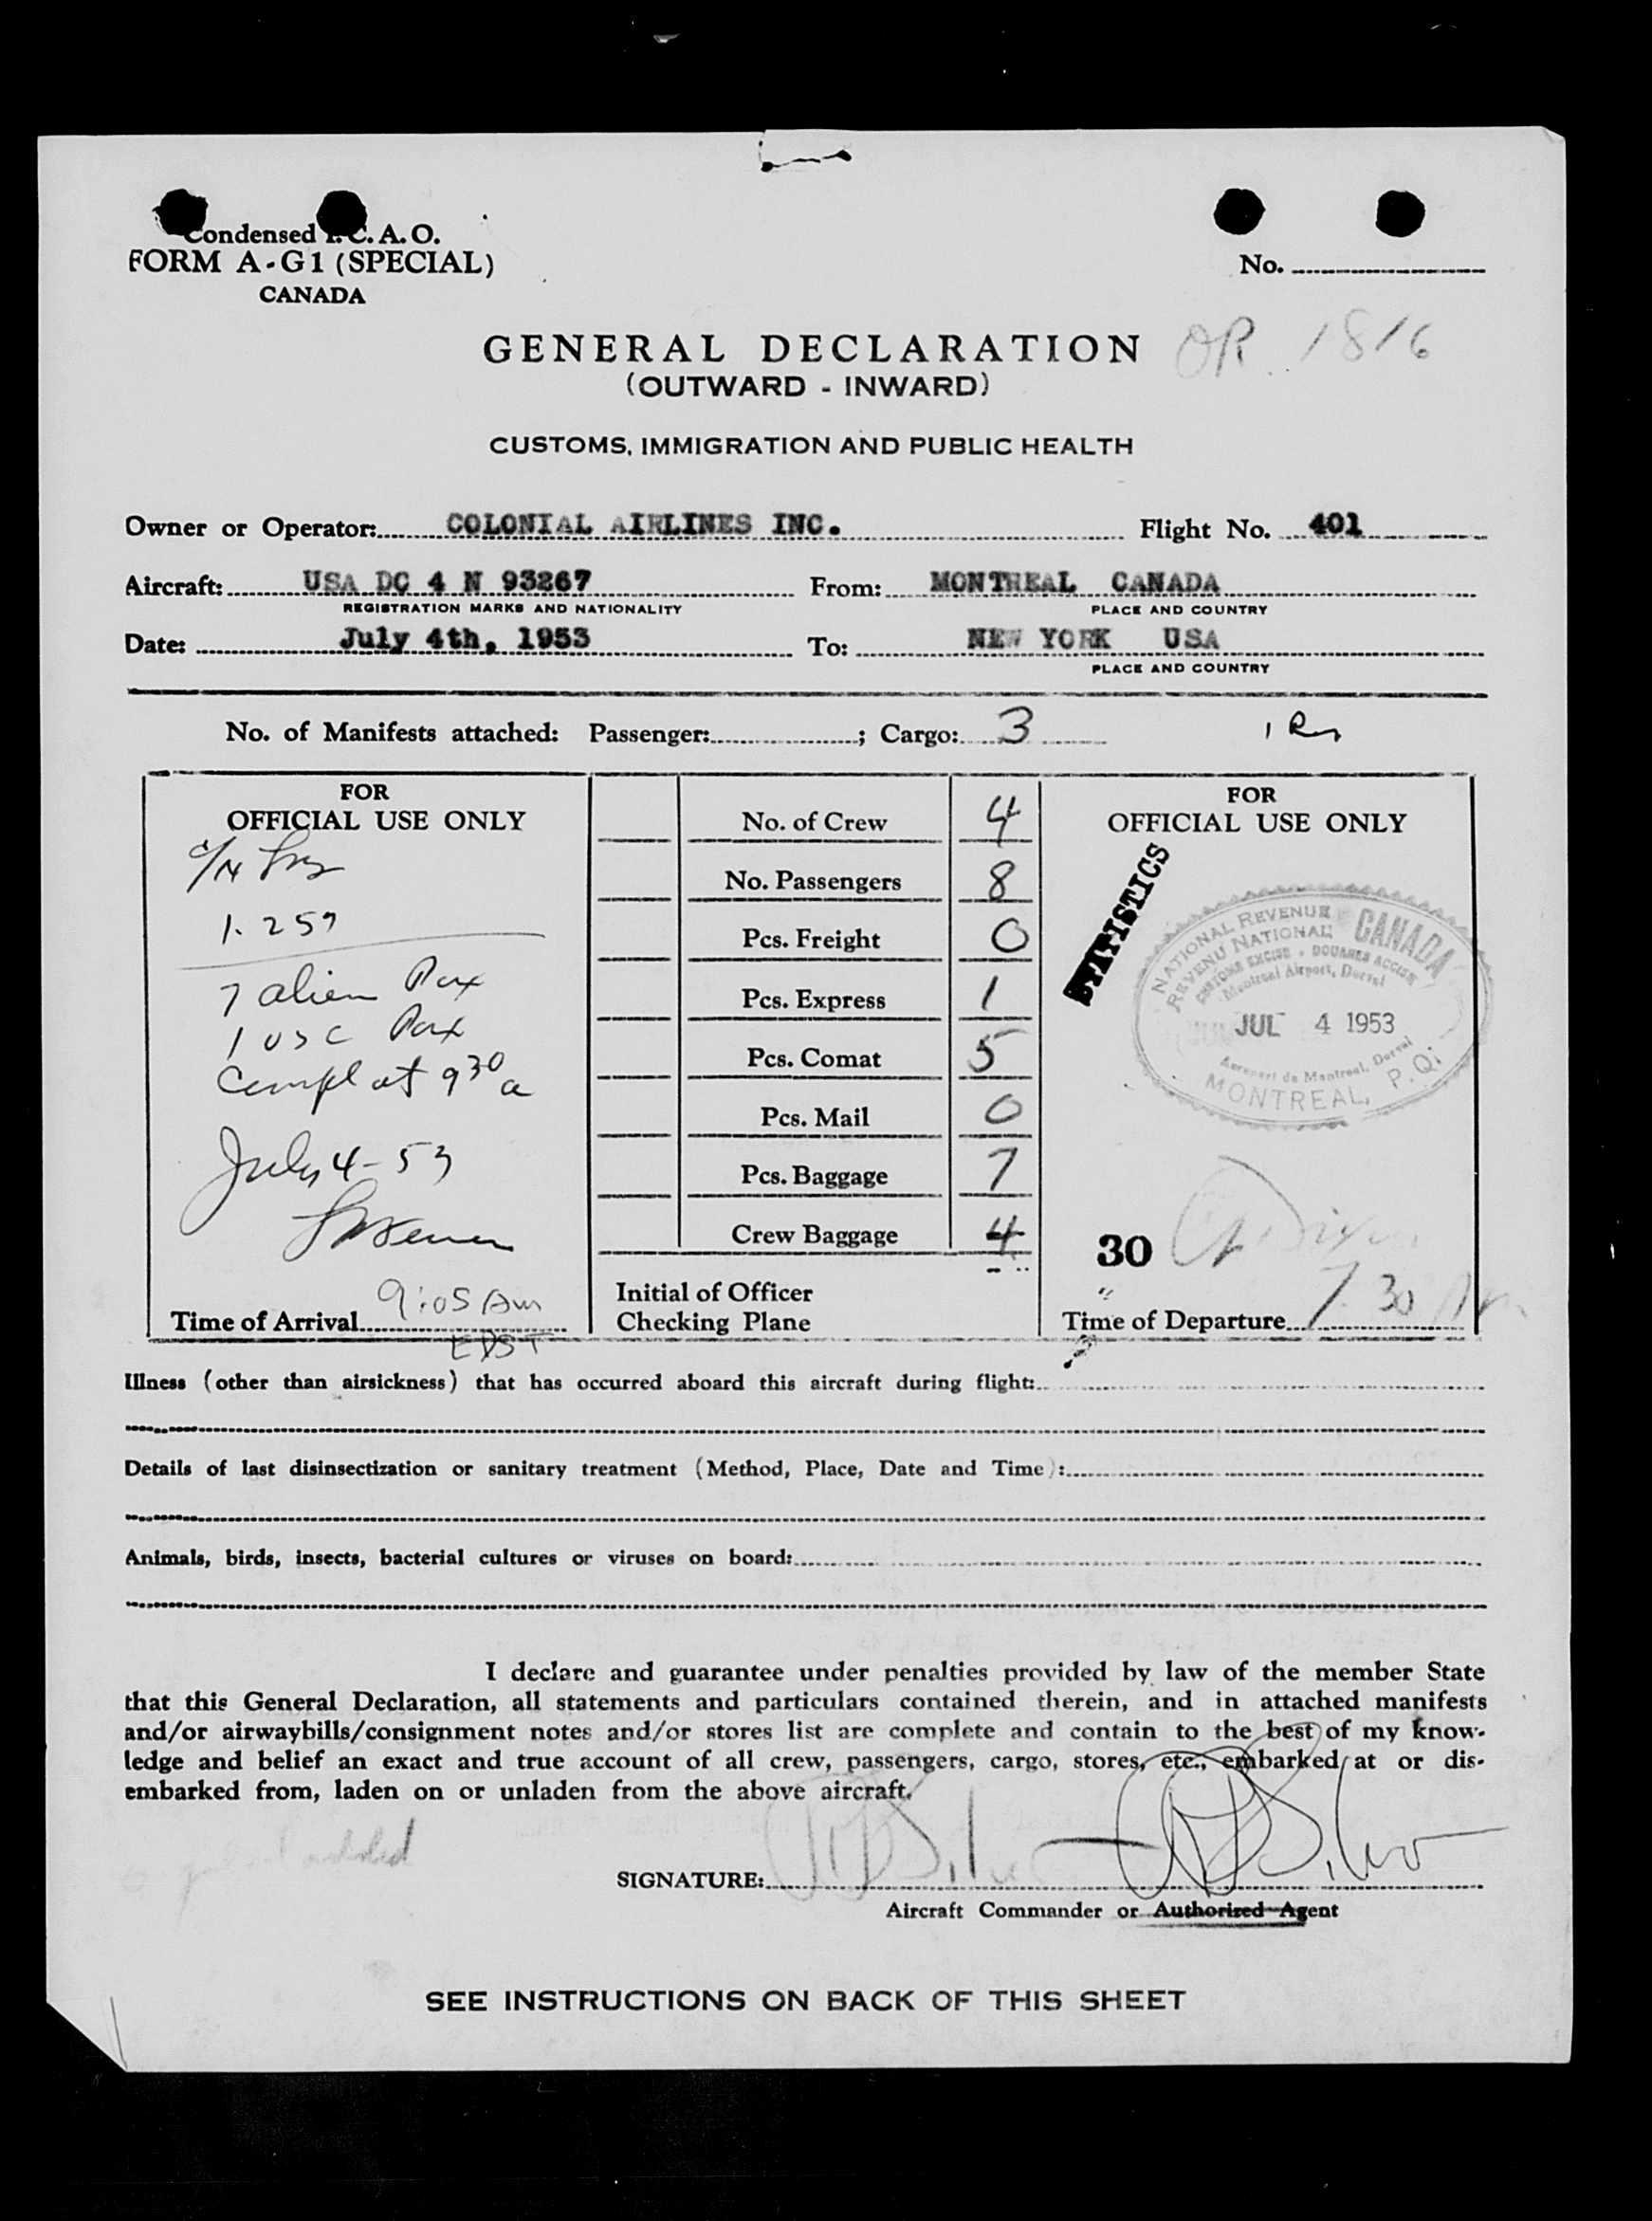 Condensed I. C. A. O.
FORM A-G1 (SPECIAL)
CANADA
No.
OR 1816
GENERAL DECLARATION
(OUTWARD - INWARD)
CUSTOMS, IMMIGRATION AND PUBLIC HEALTH
Owner or Operator: COLONIAL AIRLINES INC. Flight No. 401
Aircraft: USA DC 4 N 93267 From: MONTREAL CANADA
REGISTRATION MARKS AND NATIONALITY PLACE AND COUNTRY
Date: July 4th, 1953 To: NEW YORK USA
PLACE AND COUNTRY
No. of Manifests attached: Passenger: ; Cargo: 3
FOR
OFFICIAL USE ONLY
1. 257
7 alien Pax
1 USC Pax
Compl at 9 30 a
July 4-53
Time of Arrival 9:05 Am
EDST
No. of Crew 4
No. Passengers 8
Pcs. Freight 0
Pcs. Express 1
Pcs. Comat 5
Pcs. Mail 0
Pcs. Baggage 7
Crew Baggage 4
Initial of Officer
Checking Plane
FOR
OFFICIAL USE ONLY
STATISTICS
NATIONAL REVENUE CANADA
REVENU NATIONAL
CUSTOMS EXCISE • DOUANES ACCISE
Montreal Airport, Dorval
JUL 4 1953
Aeroport de Montreal, Dorval
MONTREAL, P.Q.
30
Time of Departure 7.30 Am
Illness (other than airsickness) that has occurred aboard this aircraft during flight:
Details of last disinsectization or sanitary treatment (Method, Place, Date and Time):
Animals, birds, insects, bacterial cultures or viruses on board:
I declare and guarantee under penalties provided by law of the member State
that this General Declaration, all statements and particulars contained therein, and in attached manifests
and/or airwaybills/consignment notes and/or stores list are complete and contain to the best of my know-
ledge and belief an exact and true account of all crew, passengers, cargo, stores, etc., embarked at or dis-
embarked from, laden on or unladen from the above aircraft.
SIGNATURE:
Aircraft Commander or Authorized Agent
SEE INSTRUCTIONS ON BACK OF THIS SHEET